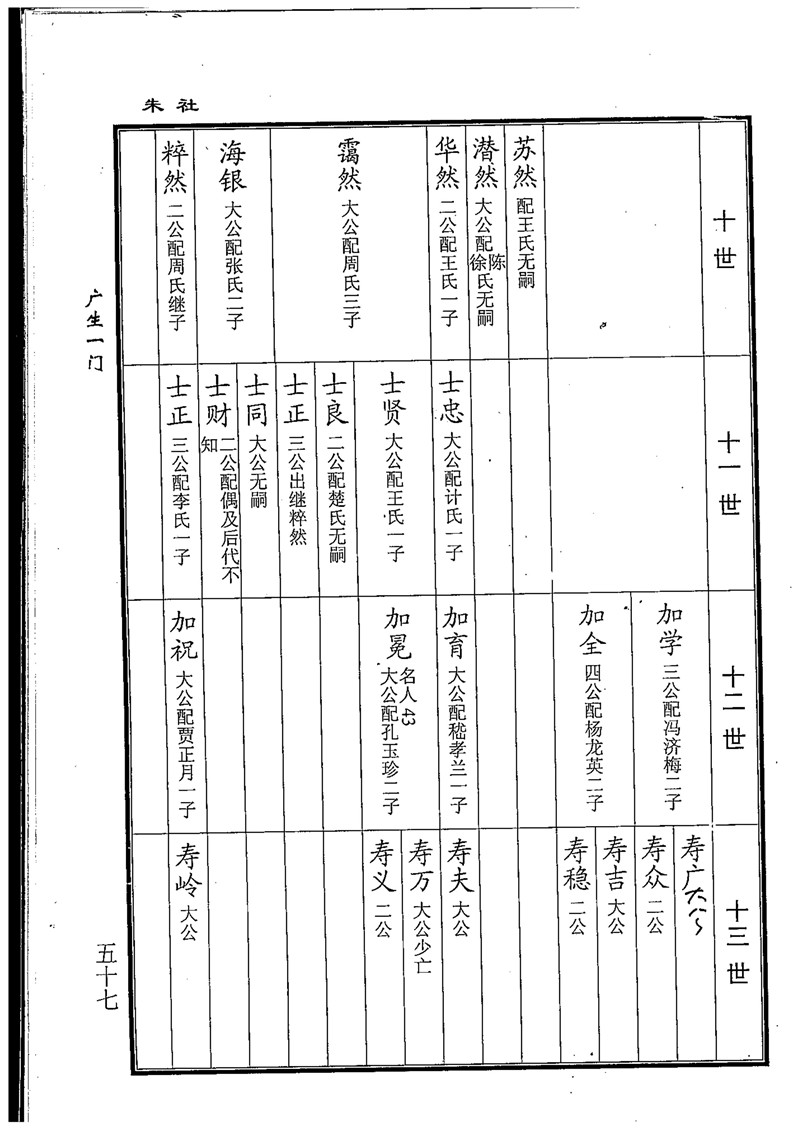 朱社
十世
苏然 配王氏无嗣
潜然 大公配陈徐氏无嗣
华然 二公配王氏一子
霭然 大公配周氏三子
海银 大公配张氏二子
粹然 二公配周氏继子
十一世
士忠 大公配计氏一子
士贤 大公配王氏一子
士良 二公配楚氏无嗣
士正 三公出继粹然
士同 大公无嗣
士财 二公配偶及后代不知
士正 三公配李氏一子
十二世
加学 三公配冯济梅二子
加全 四公配杨龙英二子
加育 大公配嵇孝兰一子
加冕 名人43 大公配孔玉珍二子
加祝 大公配贾正月一子
十三世
寿广 大公
寿众 二公
寿吉 大公
寿稳 二公
寿夫 大公
寿万 大公少亡
寿义 二公
寿岭 大公
广生一门
五十七